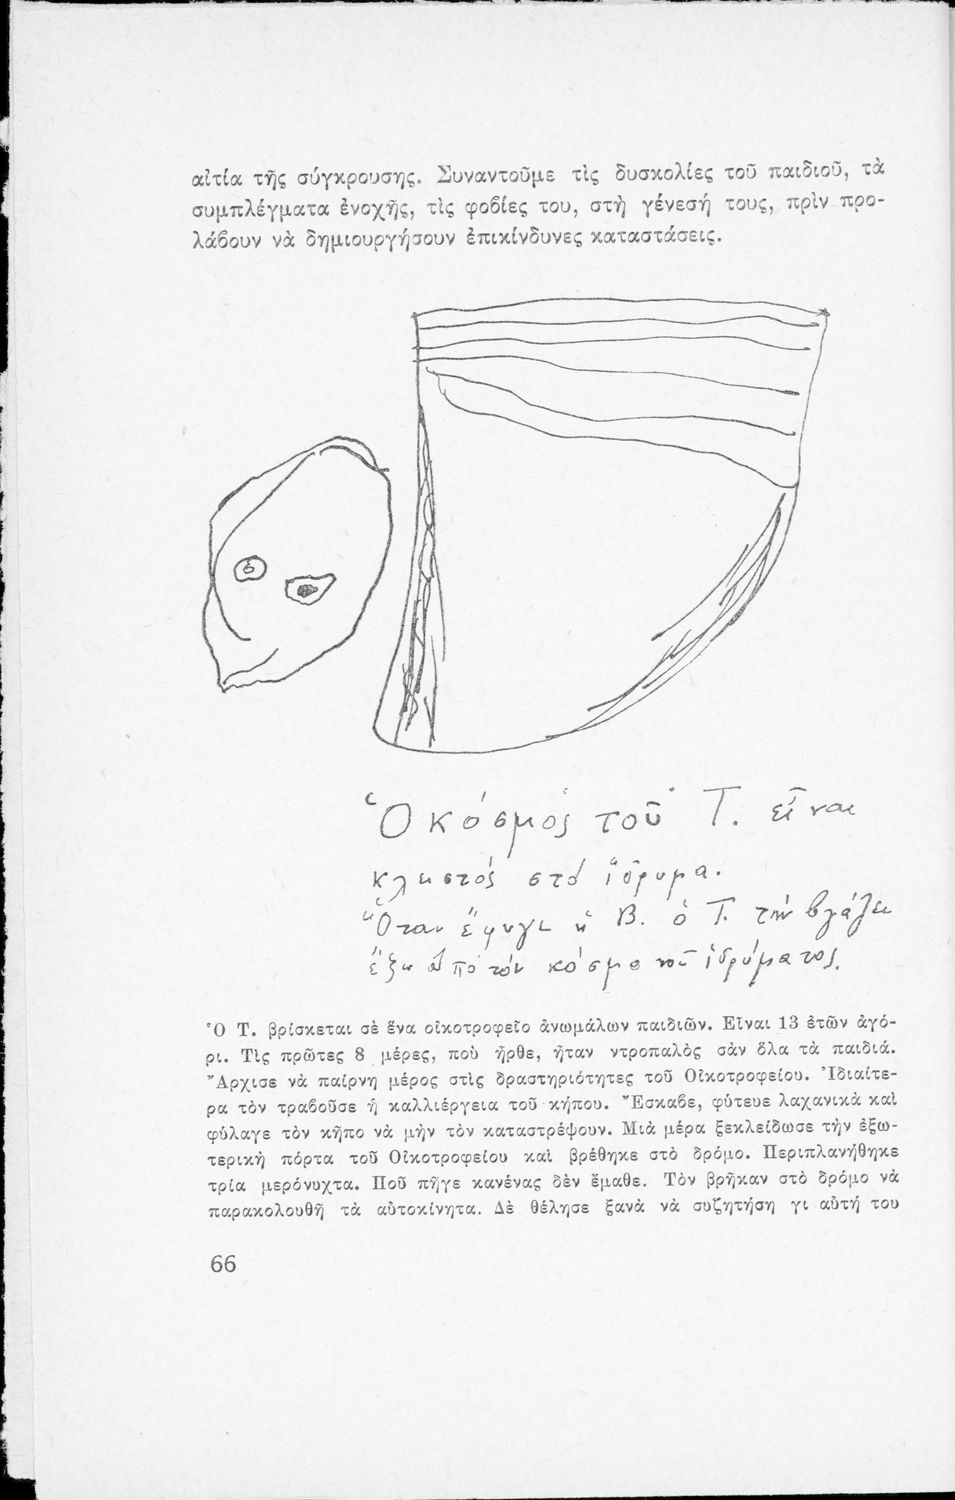 αἰτία τῆς σύγκρουσης. Συναντοῦμε τὶς δυσκολίες τοῦ παιδιοῦ, τὰ
συμπλέγματα ἐνοχῆς, τὶς φοβίες του, στὴ γένεσή τους, πρὶν προ-
λάβουν νὰ δημιουργήσουν ἐπικίνδυνες καταστάσεις.
Ὁ κόσμος τοῦ Τ. εἶναι
κλειστός στό ἵδρυμα.
Ὅταν ἔφυγε ἡ Β. ὁ Τ. τήν βγάζει
ἔξω ἀπό τόν κόσμο τοῦ ἱδρύματος.
Ὁ Τ. βρίσκεται σὲ ἕνα οἰκοτροφεῖο ἀνωμάλων παιδιῶν. Εἶναι 13 ἐτῶν ἀγό-
ρι. Τὶς πρῶτες 8 μέρες, ποὺ ἦρθε, ἦταν ντροπαλὸς σὰν ὅλα τὰ παιδιά.
Ἄρχισε νὰ παίρνη μέρος στὶς δραστηριότητες τοῦ Οἰκοτροφείου. Ἰδιαίτε-
ρα τὸν τραβοῦσε ἡ καλλιέργεια τοῦ κήπου. Ἔσκαβε, φύτευε λαχανικὰ καὶ
φύλαγε τὸν κῆπο νὰ μὴν τὸν καταστρέψουν. Μιὰ μέρα ξεκλείδωσε τὴν ἐξω-
τερικὴ πόρτα τοῦ Οἰκοτροφείου καὶ βρέθηκε στὸ δρόμο. Περιπλανήθηκε
τρία μερόνυχτα. Ποῦ πῆγε κανένας δὲν ἔμαθε. Τὸν βρῆκαν στὸ δρόμο νὰ
παρακολουθῆ τὰ αὐτοκίνητα. Δὲ θέλησε ξανὰ νὰ συζητήση γι αὐτή του
66